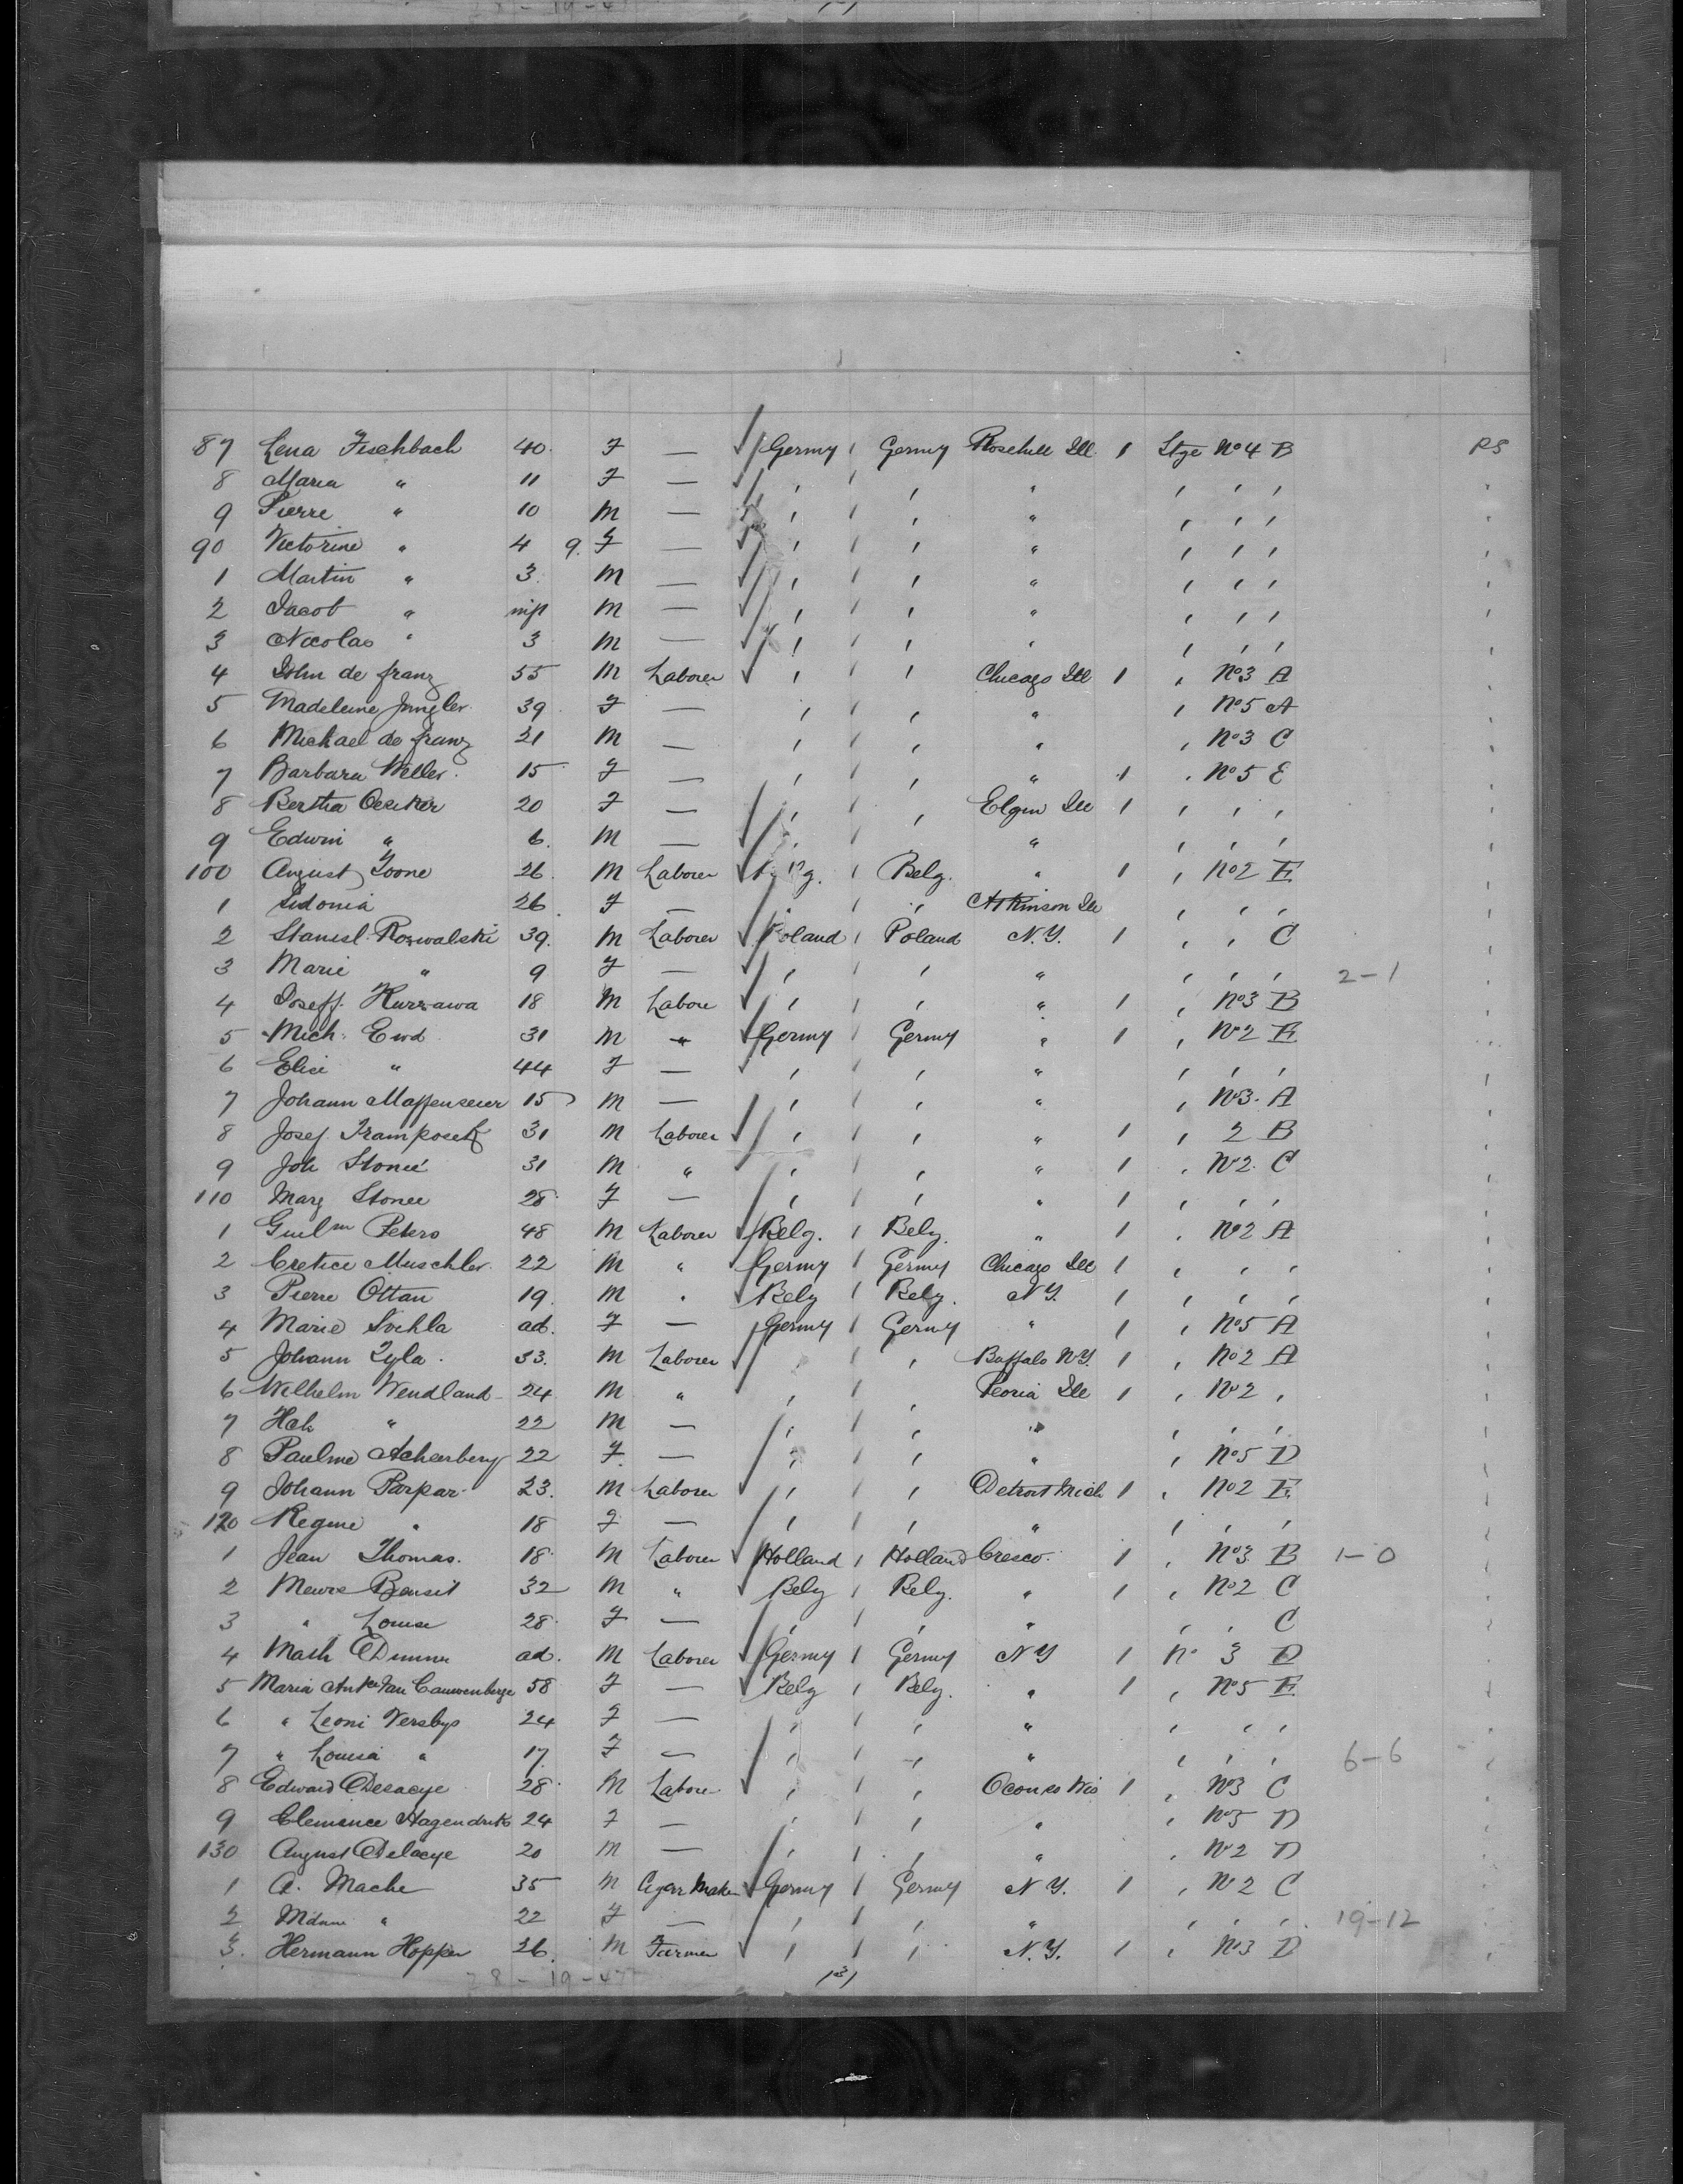 87 Lena Fischbach 40 F — Germy Germy Rosehill Ill 1 Stge No 4 B RS
8 Maria " 11 F — " " " " " "
9 Pierre " 10 M — " " " " " "
90 Victorine " 4 9 F — " " " " " "
1 Martin " 3 M — " " " " " "
2 Jacob " M — " " " " " "
3 Nicolas " 3 M — " " " " " "
4 John de franz 55 M Laborer " " Chicago Ill 1 " No 3 A
5 Madeleine Jungler 39 F — " " " " No 5 A
6 Michael de franz 21 M — " " " " No 3 C
7 Barbara Weller 15 F — " " " 1 " No 5 E
8 Bertha 20 F — " " Elgin Ill 1 " " "
9 Edwin " 6 M — " " " " " "
100 August Goone 26 M Laborer Belg. " 1 " No 2 E
1 Sidonia 26 F — " " Atkinson Ill " " "
2 Stanisl. Roswalski 39 M Laborer Poland Poland N.Y. 1 " " C
3 Marie " 9 F — " " " " " " 2-1
4 Joseff Kurzawa 18 M Labore " " " 1 " No 3 B
5 Mich. Ewd 31 M " Germy Germy " 1 " No 2 E
6 Elise " 44 F — " " " " " "
7 Johann 15 M — " " " " No 3 A
8 Josef 31 M Laborer " " " 1 " 2 B
9 Joh Stonie 31 M " " " " 1 " No 2 C
110 Marg Stonee 28 F — " " " 1 " " "
1 Guilm Peters 48 M Laborer Belg. Belg. " 1 " No 2 A
2 Muschler 22 M " Germy Germy Chicago Ill 1 " " "
3 Pierre Ottan 19 M " Belg Belg. N.Y. 1 " " "
4 Marie Sochla ad. F — Germy Germy " 1 " No 5 A
5 Johann Zyla 33 M Laborer " " Buffalo N.Y. 1 " No 2 A
6 Wilhelm Wendland 24 M " " " Peoria Ill 1 " No 2 "
7 " 22 M — " " " " " "
8 Pauline Acherberg 22 F — " " " " No 5 D
9 Johann Parpar 23 M Laborer " " Detroit Mich 1 " No 2 E
120 Regine " 18 F — " " " " " "
1 Jean Thomas 18 M Laborer Holland Holland Cresco 1 " No 3 B 1-0
2 Bensit 32 M " Belg Belg. " 1 " No 2 C
3 " Louise 28 F — " " " " " C
4 Math ad. M Laborer Germy Germy N Y 1 No 3 D
5 Maria Van Cauwenberge 58 F — Belg Belg. " 1 " No 5 E
6 " Leoni Versbys 24 F — " " " " " "
7 " Louisa " 17 F — " " " " " " 6-6
8 Edward Delaeye 28 M Labore " " Wis 1 " No 3 C
9 Clemence 24 F — " " " " No 5 D
130 August Delaeye 20 M — " " " " No 2 D
1 A. Mache 35 M Cigar Maker Germy Germy N Y. 1 " No 2 C
2 " 22 F — " " " " " " 19-12
3 Hermann Hopper 26 M Farmer " " N.Y. 1 " No 3 D
19-47